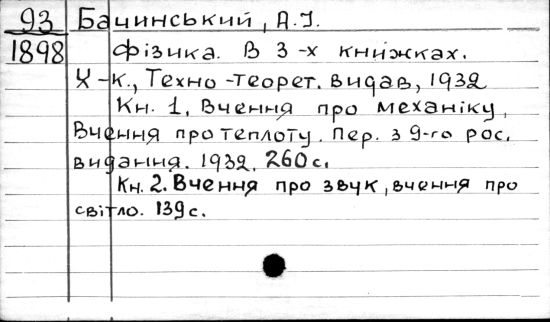 93 Бачинський, А.І.
1898 Фізика. В 3-х книжках.
Х-к., Техно-теорет. видав, 1932
Кн. 1. Вчення про механіку,
Вчення про теплоту. Пер. з 9-го рос.
видання. 1932. 260с.
Кн. 2. Вчення про звук, вчення про
світло. 139с.